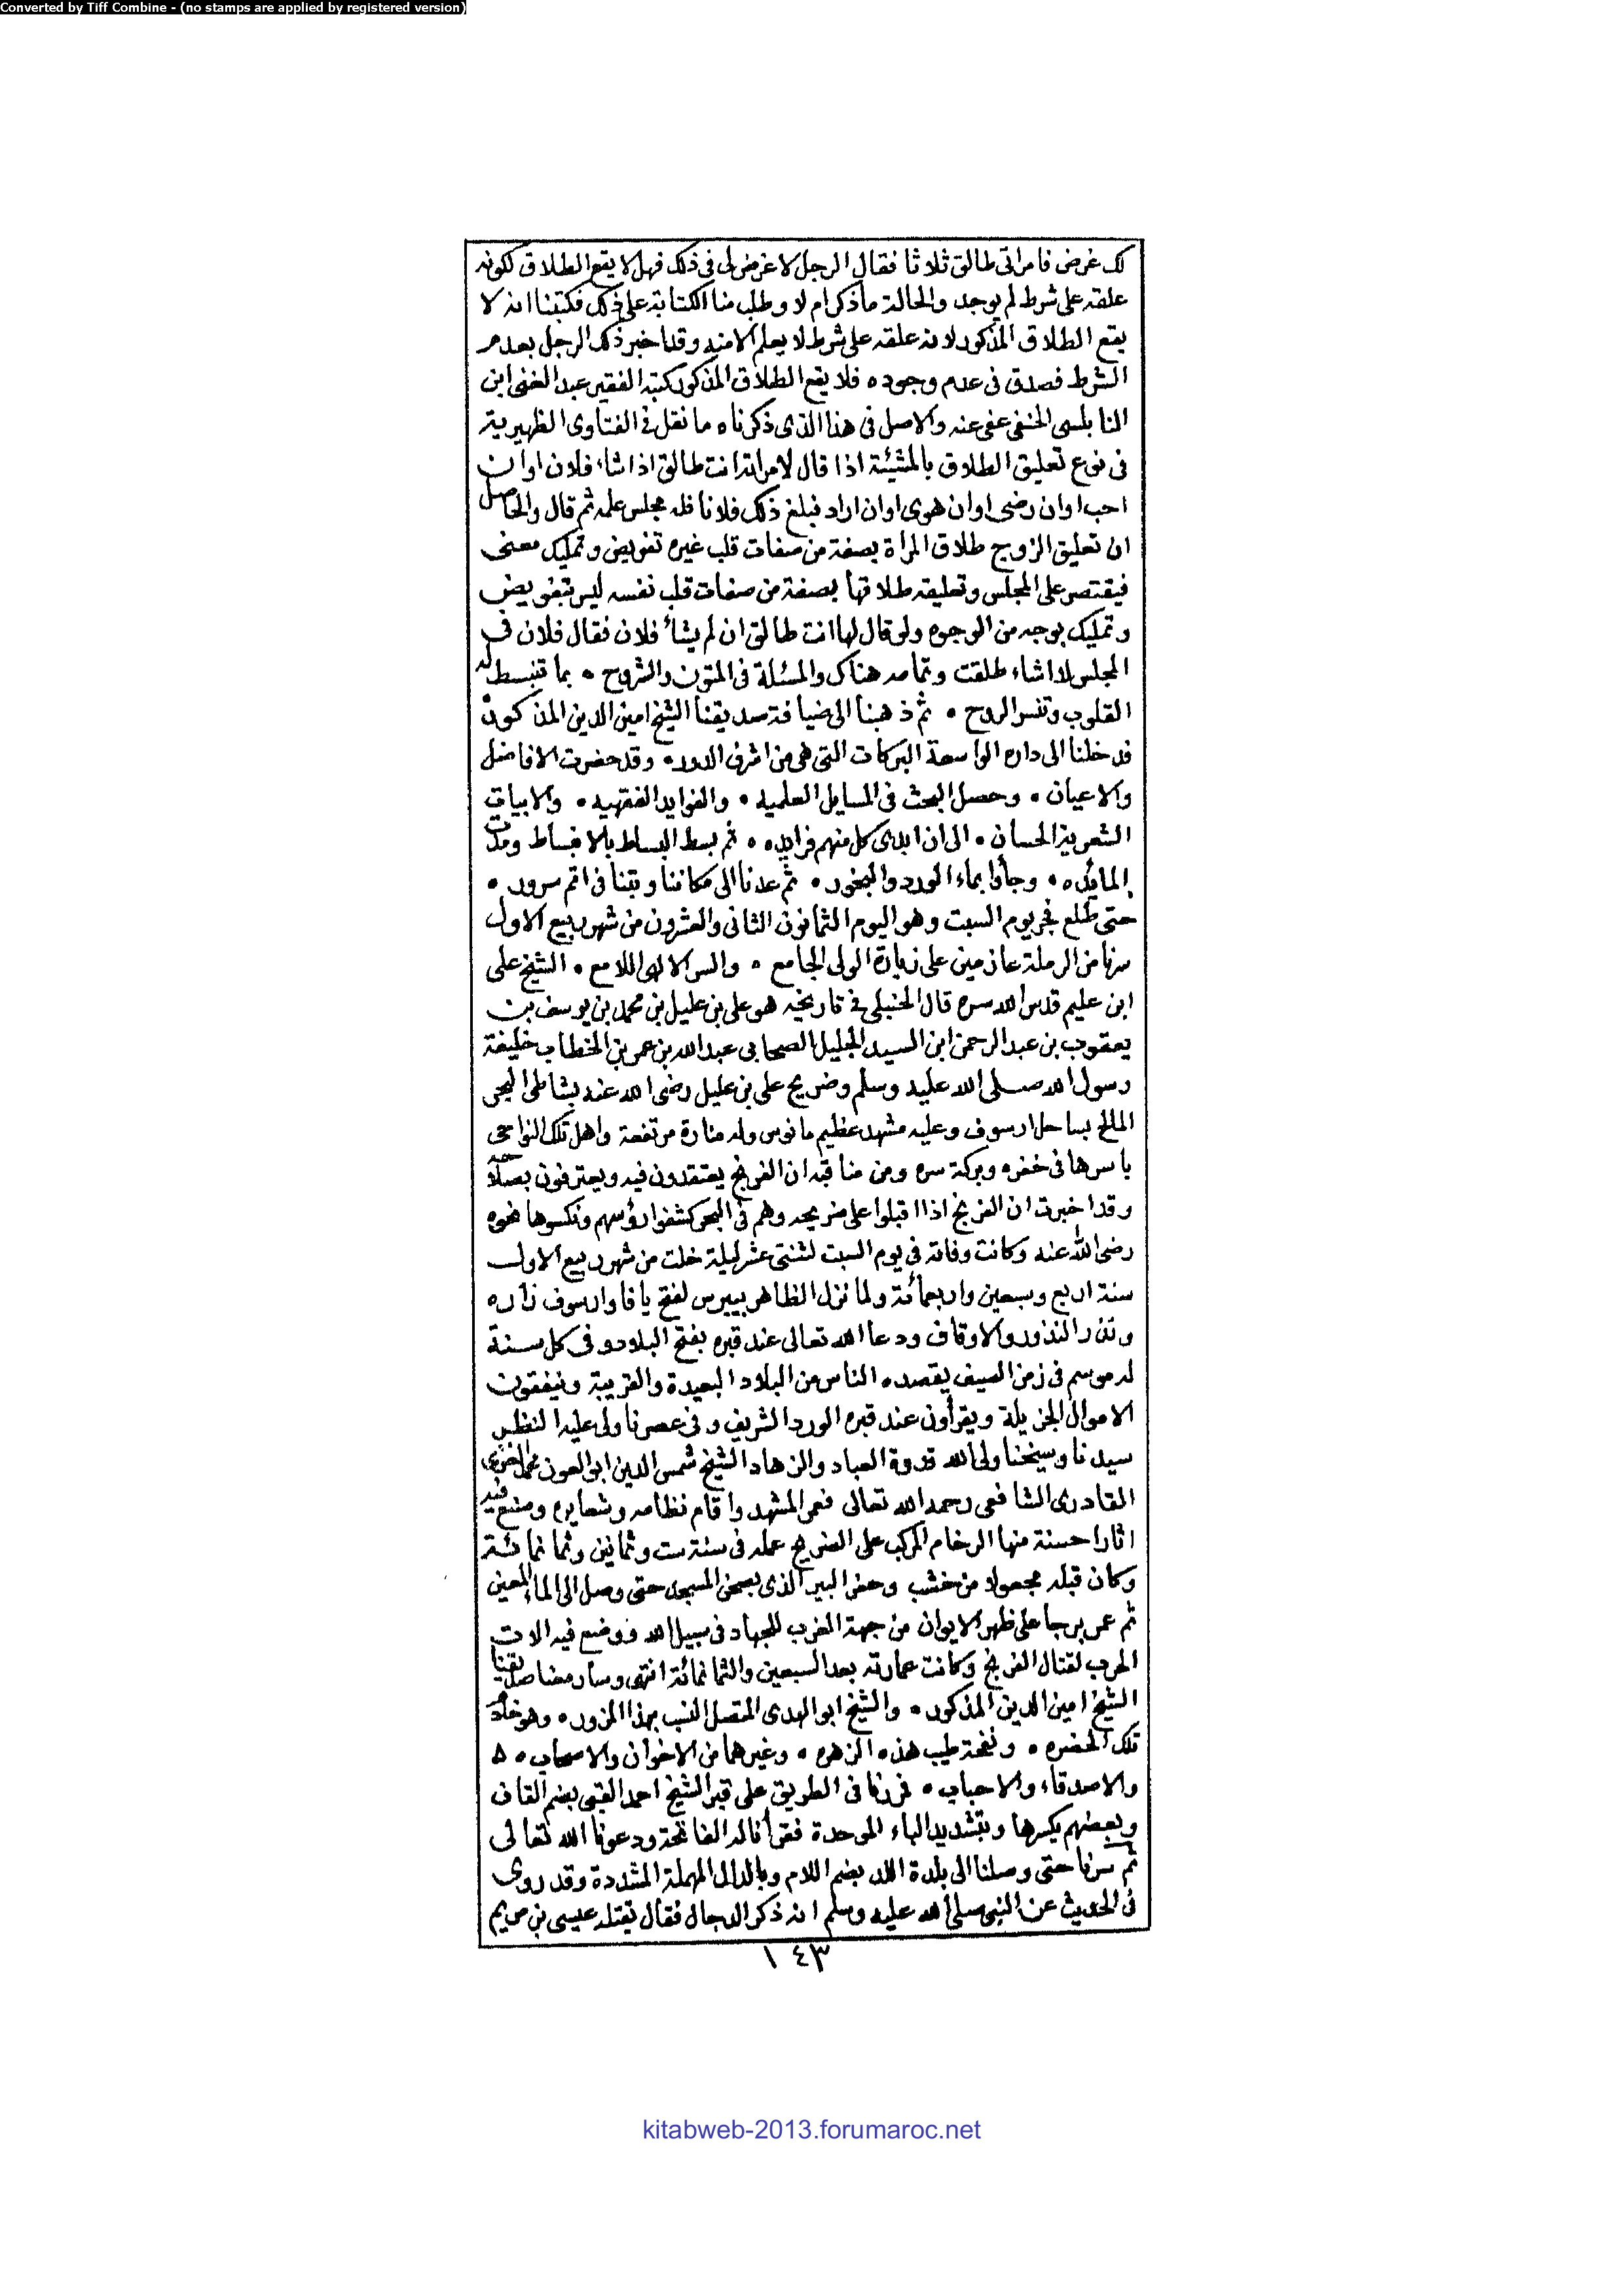 Converted by Tiff Combine - (no stamps are applied by registered version)
لك غرض فامراتى طالق ثلاثا فقال الرجل لا غرض لى فى ذلك فهل لا يقع الطلاق لكونه
علقه على شرط لم يوجد والحالة ما ذكر ام لا وطلب منا الكتابة على ذلك فكتبنا انه لا
يقع الطلاق المذكور لانه علقه على شرط لا يعلم الا منه وقد اخبر ذلك الرجل بعدم
الشرط فصدق فى عدم وجوده فلا يقع الطلاق المذكور كتبه الفقير عبد الغنى ابن
النابلسى الحنفى عفى عنه والاصل فى هذا الذى ذكرناه ما نقل فى الفتاوى الظهيرية
فى نوع تعليق الطلاق بالمشيئة اذا قال لامراته انت طالق اذا شاء فلان او ان
احب او ان رضى او ان هوى او ان اراد فبلغ ذلك فلانا فله مجلس علمه ثم قال والحاصل
ان تعليق الزوج طلاق المراة بصفة من صفات قلب غيره تفويض وتمليك معنى
فيقتصر على المجلس وتعليقه طلاقها بصفة من صفات قلب نفسه ليس بتفويض
وتمليك بوجه من الوجوه ولو قال لها انت طالق ان لم يشأ فلان فقال فلان فى
المجلس لا اشاء طلقت وتمامه هناك والمسئلة فى المتون والشروح ۰ بما تنبسط له
القلوب وتسر الروح ۰ ثم ذهبنا الى ضيافة صديقنا الشيخ امين الدين المذكور
فدخلنا الى داره الواسعة البركات التى هى من اشرف الدور ۰ وقد حضرت الافاضل
والاعيان ۰ وحصل البحث فى المسايل العلميه ۰ والفوايد الفقهيه ۰ والابيات
الشعرية الحسان ۰ الى ان ابدى كل منهم فرايده ۰ ثم بسط البساط بالانبساط ومدت
المائده ۰ وجاؤا بماء الورد والبخور ۰ ثم عدنا الى مكاننا وبتنا فى اتم سرور ۰
حتى طلع فجر يوم السبت وهو اليوم الثمانون الثانى والعشرون من شهر ربيع الاول
سرنا من الرملة عازمين على زيارة الولى الجامع ۰ والسر الالهى اللامع ۰ الشيخ على
ابن عليم قدس الله سره قال الحنبلى فى تاريخه هو على بن عليل بن محمد بن يوسف بن
يعقوب بن عبد الرحمن ابن السيد الجليل الصحابى عبد الله بن عمر بن الخطاب خليفة
رسول الله صلى الله عليه وسلم وضريح على بن عليل رضى الله عنه بشاطى البحر
المالح بساحل ارسوف وعليه مشهد عظيم مانوس وله منارة مرتفعة واهل تلك النواحى
باسرها فى خفره وبركة سره ومن مناقبه ان الفرنج يعتقدون فيه ويعترفون بصلاحه
وقد اخبرت ان الفرنج اذا اقبلوا على ضريحه وهم فى البحر كشفوا رؤسهم ونكسوها نحوه
رضى الله عنه وكانت وفاته فى يوم السبت لثنتى عشر ليلة خلت من شهر ربيع الاول
سنة اربع وسبعين واربعمائة ولما نزل الظاهر بيبرس لفتح يافا وارسوف زاره
ونذر النذور والاوقاف ودعا الله تعالى عند قبره بفتح البلاد وفى كل سنة
له موسم فى زمن الصيف يقصده الناس من البلاد البعيدة والقريبة وينفقون
الاموال الجزيلة ويقرأون عند قبره المورد الشريف وفى عصرنا ولى عليه النظر
سيدنا وشيخنا ولى الله قدوة العباد والزهاد الشيخ شمس الدين ابو العون محمد الغزى
القادرى الشافعى رحمه الله تعالى فعمر المشهد واقام نظامه وشعايره وصنع فيه
اثارا حسنة منها الرخام المركب على الضريح عمله فى سنة ست وثمانين وثمانمائة
وكان قبله مجعولا من خشب وحفر البير الذى بصحن المسجد حتى وصل الى الماء المعين
ثم عمر برجا على ظهر الايوان من جهة الغرب للجهاد فى سبيل الله ووضع فيه الات
الحرب لقتال الفرنج وكانت عمارته بعد السبعين والثمانمائة انتهى وسار معنا صديقنا
الشيخ امين الدين المذكور ۰ والشيخ ابو الهدى المتصل النسب بهذا المزور ۰ وهو خادم
تلك الحضره ۰ ونفحة طيب هذه الزهره ۰ وغيرهما من الاخوان والاصحاب ۰
والاصدقاء والاحباب ۰ فمررنا فى الطريق على قبر الشيخ احمد القبى بضم القاف
وبعضهم يكسرها وبتشديد الباء الموحدة فقرأنا له الفاتحة ودعونا الله تعالى
ثم سرنا حتى وصلنا الى بلدة اللد بضم اللام وبالدال المهملة المشددة وقد روى
فى الحديث عن النبى صلى الله عليه وسلم انه ذكر الدجال فقال يقتله عيسى بن مريم
١٤٣
kitabweb-2013.forumaroc.net